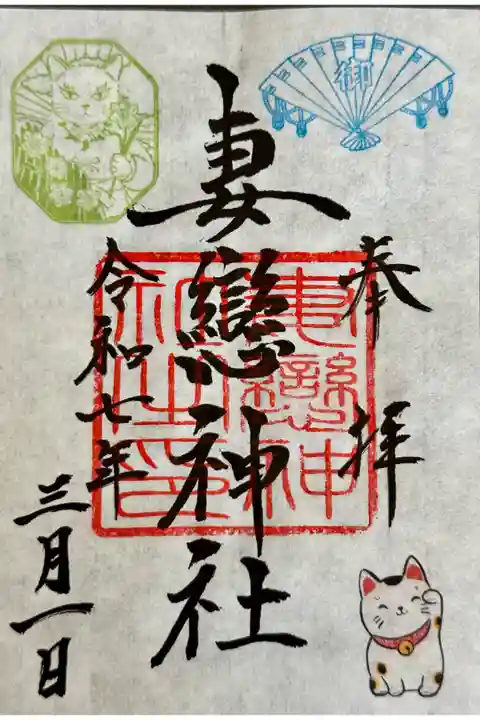 御
奉拝
妻戀神社
妻戀神
社印
令和七年
三月一日